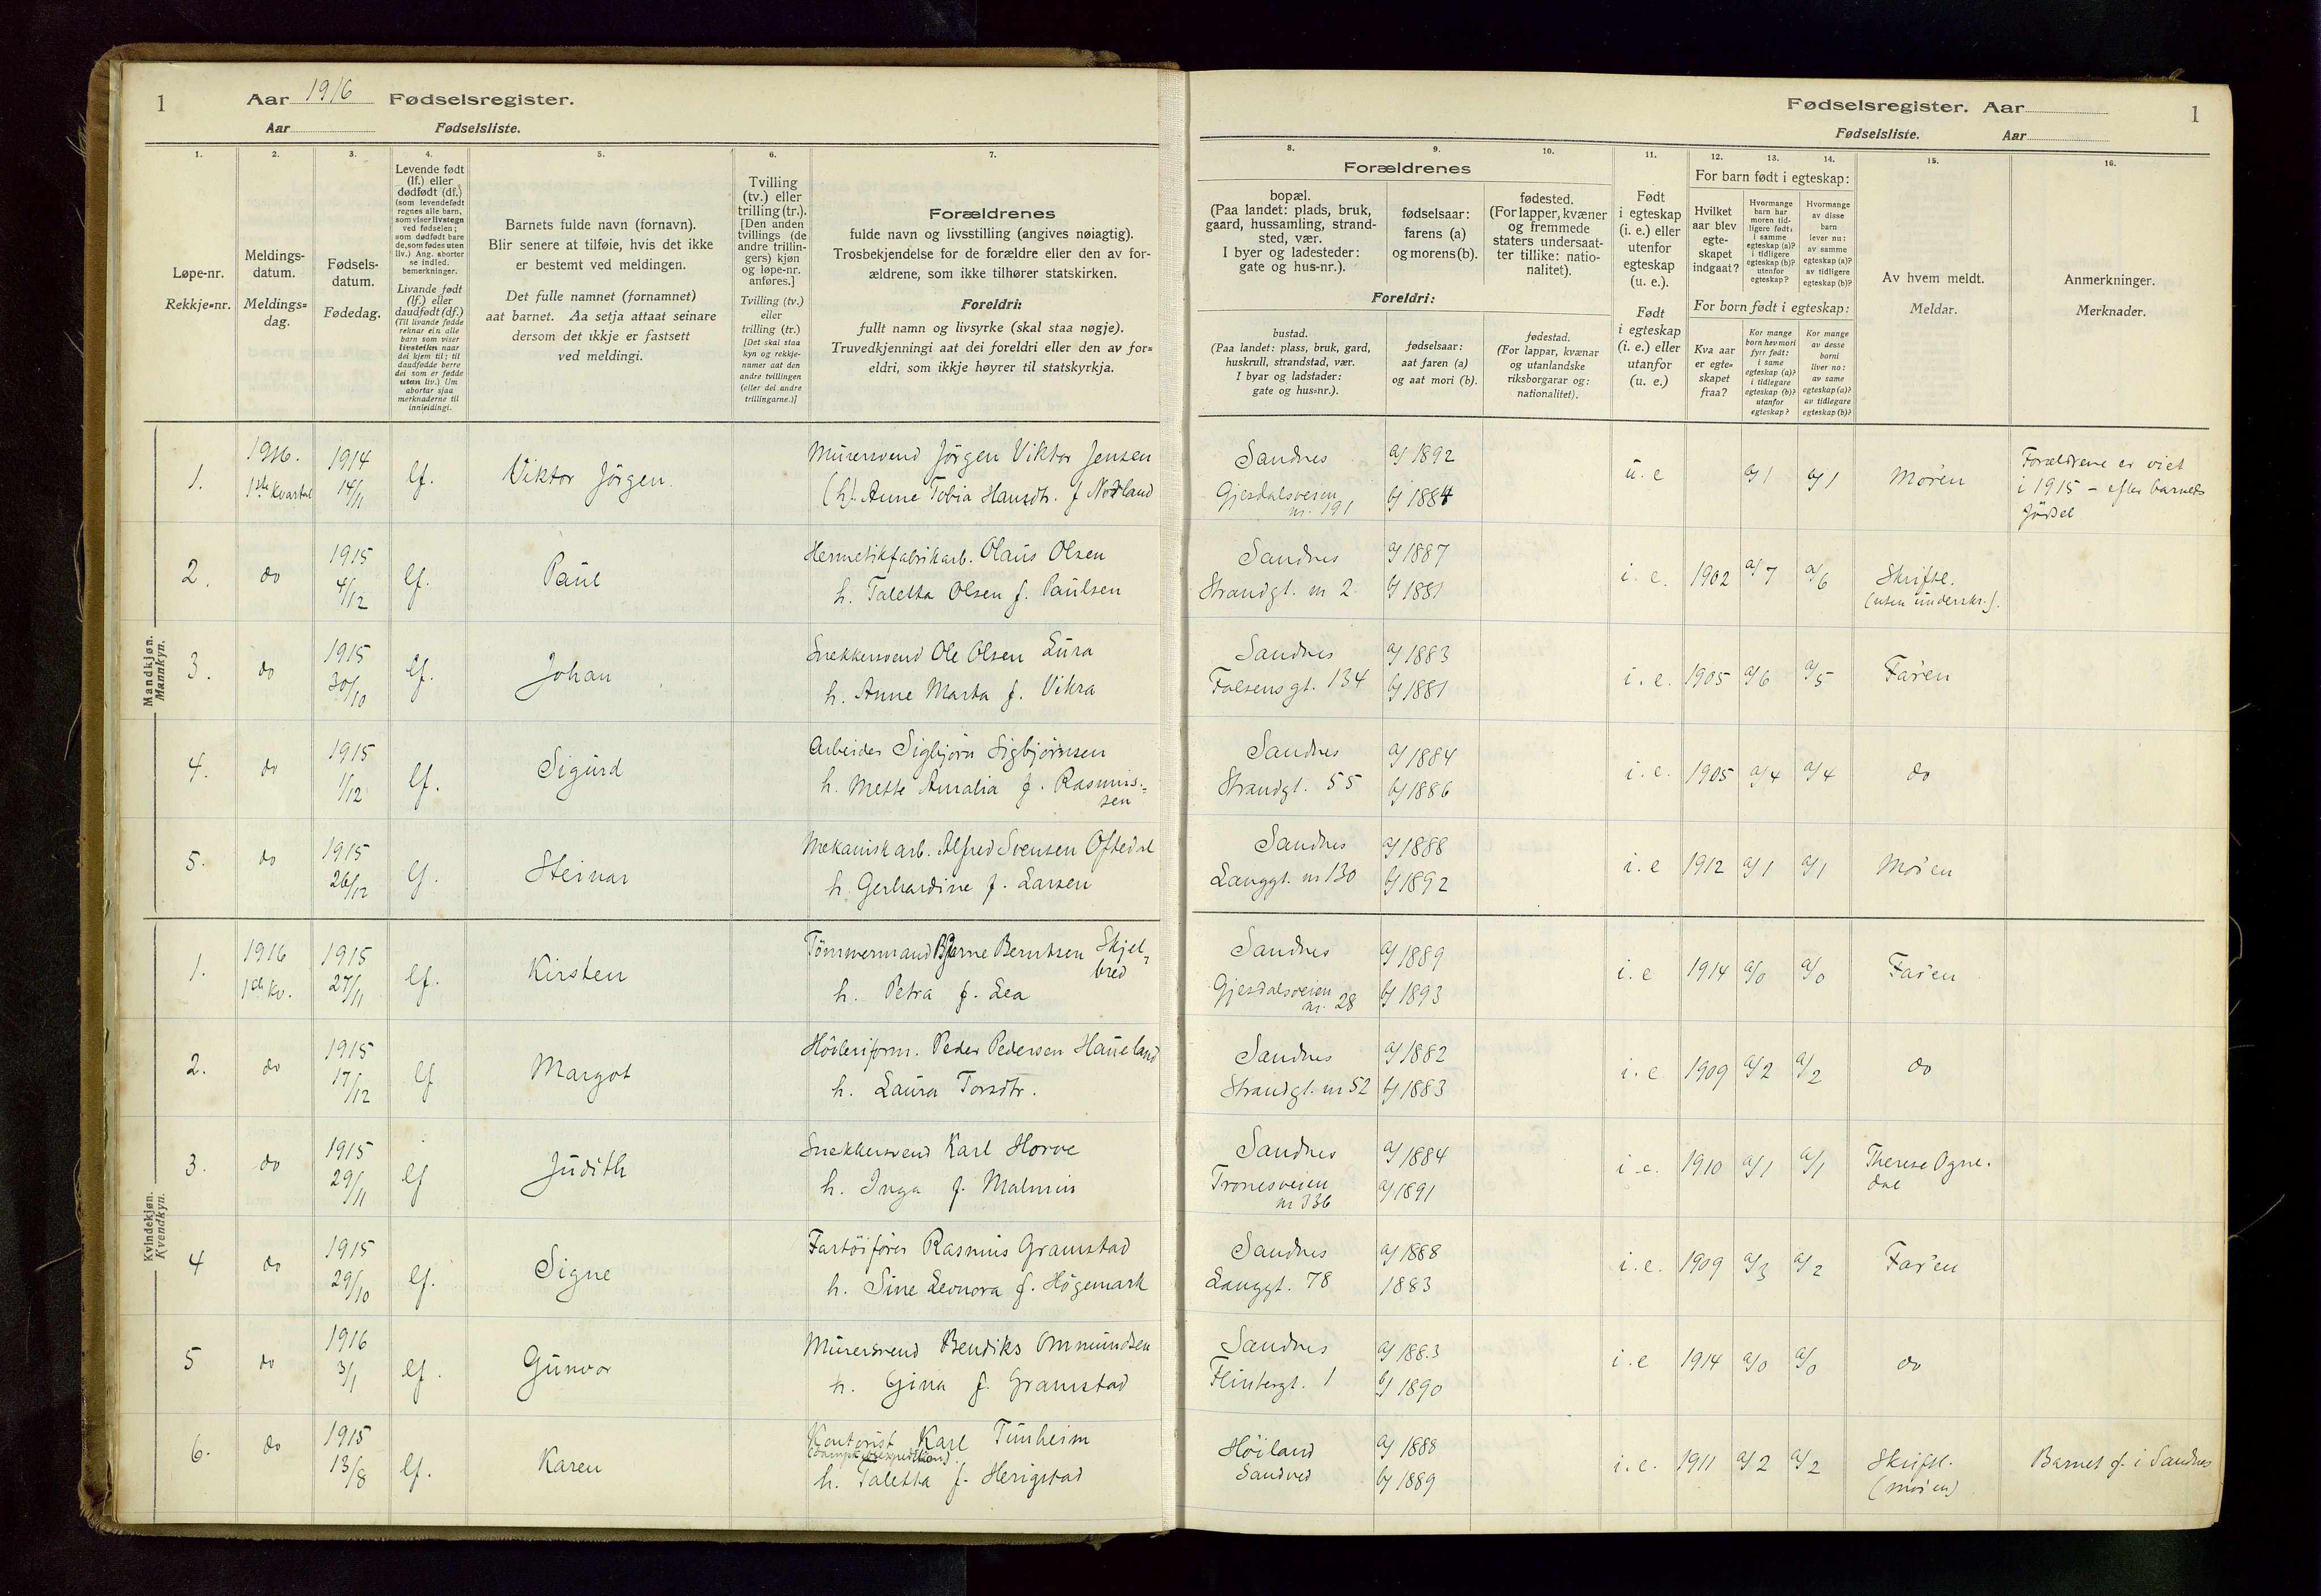 1
Aar 1916 Fødselsregister.
Aar Fødselsliste.
1.
2.
3.
4.
5.
6.
7.
Løpe-nr.
Rekkje=nr.
Meldings-
datum.
Meldings=
dag.
Fødsels-
datum.
Fødedag.
Levende født
(lf.) eller
dødfødt (df.)
(som levendefødt
regnes alle barn,
som viser livstegn
ved fødselen;
som dødfødt bare
de, som fødes uten
liv.) Ang. aborter
se indled.
bemerkninger.
Livande født
(lf.) eller
daudfødt (df.)
(Til livande fødde
reknar ein alle
barn som viser
livsteikn naar
dei kjem til; til
daudfødde berre
dei som er fødde
utan liv.) Um
abortar sjaa
merknaderne til
innleidingi.
Barnets fulde navn (fornavn).
Blir senere at tilføie, hvis det ikke
er bestemt ved meldingen.
Det fulle namnet (fornamnet)
aat barnet. Aa setja attaat seinare
dersom det ikkje er fastsett
ved meldingi.
Tvilling
(tv.) eller
trilling (tr.).
[Den anden
tvillings (de
andre trillin-
gers) kjøn
og løpe-nr.
anføres.]
Tvilling (tv.)
eller
trilling (tr.)
[Det skal staa
kyn og rekkje-
numer aat den
andre tvillingen
(eller dei andre
trillingarne.)]
Forældrenes
fulde navn og livsstilling (angives nøiagtig).
Trosbekjendelse for de forældre eller den av for-
ældrene, som ikke tilhører statskirken.
Foreldri:
fullt namn og livsyrke (skal staa nøgje).
Truvedkjenningi aat dei foreldri eller den av for=
eldri, som ikkje høyrer til statskyrkja.
Fødselsregister. Aar
Fødselsliste. Aar
1
8.
9.
10.
11.
12.
13.
14.
15.
16.
Forældrenes
bopæl.
(Paa landet: plads, bruk,
gaard, hussamling, strand-
sted, vær.
I byer og ladesteder:
gate og hus-nr.).
fødselsaar:
farens (a)
og morens (b).
fødested.
(For lapper, kvæner
og fremmede
staters undersaat-
ter tillike: natio-
nalitet).
Foreldri:
bustad.
(Paa landet: plass, bruk, gard,
huskrull, strandstad, vær.
I byar og ladstader:
gate og hus=nr.).
fødselsaar:
aat faren (a)
og aat mori (b).
fødestad.
(For lappar, kvænar
og utanlandske
riksborgarar og:
nationalitet).
Født
i egteskap
(i. e.) eller
utenfor
egteskap
(u. e.).
Født
i egteskap
(i. e.) eller
utanfor
(u. e.)
For barn født i egteskap:
Hvilket
aar blev
egte-
skapet
indgaat?
Hvormange
barn har
moren tid-
ligere født:
i samme
egteskap (a)?
i tidligere
egteskap (b)?
utenfor
egteskap?
Hvormange
av disse
barn
lever nu:
av samme
egteskap (a)?
av tidligere
egteskap (b)?
For born født i egteskap:
Kva aar
er egte=
skapet
fraa?
Kor mange
born hev mori
fyrr født:
i same
egteskap (a)?
i tidlegare
egteskap (b)?
utanfor
egteskap?
Kor mange
av desse
borni
liver no:
av same
egteskap (a)?
av tidlegare
egteskap (b)?
Av hvem meldt.
Meldar.
Anmerkninger.
Merknader.
Mandkjøn.
Mannkyn.
1. 1916. 1ste Kvartal 1914 14/11 lf. Viktor Jörgen Murersvend Jörgen Viktor Jensen
(h). Anne Tobia Hansdtr. f Nordland
Sandnes a) 1892 u. e a) 1 a) 1 Moren Forældrene er viet
Gjesdalsveien nr. 191 b) 1884 i 1915 – efter barnets
födsel
2. do 1915 4/12 lf. Paul Hermetikfabrikarb. Olaus Olsen
h. Taletta Olsen f. Paulsen
Sandnes a) 1887 i. e. 1902 a) 7 a) 6 Skriftl.
Strandgt. nr 2 b) 1881 (uten underskr.).
3. do 1915 30/10 lf. Johan Snekkersvend Ole Olsen Lura
h. Anne Marta f. Vikra
Sandnes a) 1883 i. e. 1905 a) 6 a) 5 Faren
Folsensgt. 134 b) 1881
4. do 1915 1/12 lf. Sigurd Arbeider Sigbjörn Sigbjörnsen
h. Mette Amalia f. Rasmus-
sen
Sandnes a) 1884 i. e. 1905 a) 4 a) 4 do
Strandgt. 55 b) 1886
5. do 1915 26/12 lf. Steinar Mekanisk arb. Alfred Svensen Oftedal
h. Gerhardine f. Larsen
Sandnes a) 1888 i. e 1912 a) 1 a) 1 Moren
Langgt. nr 130 b) 1892
Kvindekjøn.
Kvendkyn.
1. 1916 1ste Kv. 1915 27/11 lf. Kirsten Tömmermand Bjarne Berntsen Skjel-
bred
h. Petra f. Lea
Sandnes a) 1889 i. e 1914 a) 0 a) 0 Faren
Gjesdalsveien nr. 28 b) 1893
2. do 1915 17/12 lf Margot Hövleriform. Peder Pedersen Haueland
h. Laura Torsdtr.
Sandnes a) 1882 i. e 1909 a) 2 a) 2 do
Strandgt. nr 52 b) 1883
3. do 1915 29/11 lf Judith Snekkersvend Karl Horve
h. Inga f. Malmin
Sandnes a) 1884 i. e. 1910 a) 1 a) 1 Therese Ogne-
dal
Tronesveien nr 336 a) 1891
4 do 1915 29/10 lf. Signe Fartöiförer Rasmus Gramstad
h. Sine Leonora f. Högemark
Sandnes a) 1888 i. e. 1909 a) 3 a) 2 Faren
Langgt. 78 1883
5 do 1916 3/1 lf. Gunvor Murersvend Bendiks Ommundsen
h. Gina f. Gramstad
Sandnes a) 1883 i. e 1914 a) 0 a) 0 do
Flintergt. 1 b) 1890
6. do 1915 13/8 lf. Karen Kontorist Karl Tunheim
h. Taletta f. Herigstad
Höiland a) 1888 i. e. 1911 a) 2 a) 2 Skriftl. Barnet f. i Sandnes
Sandved b) 1889 (moren)